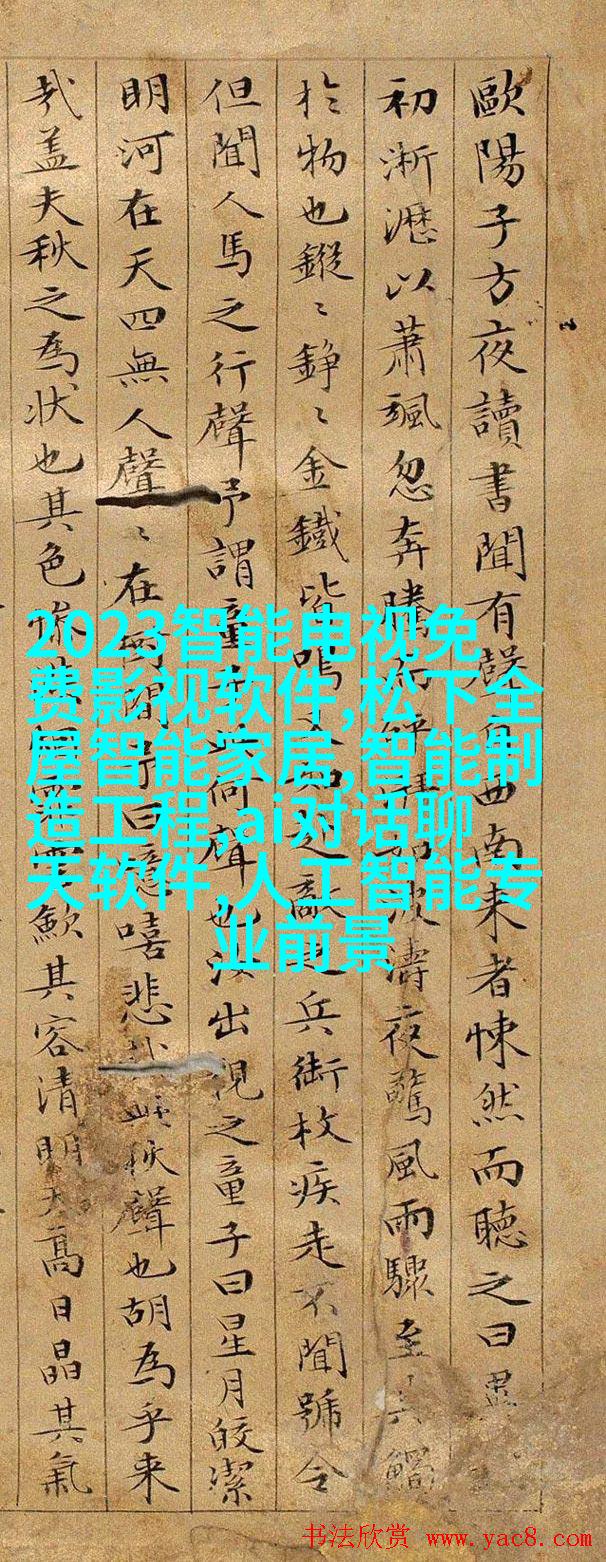 歐陽子方夜讀書聞有聲自西南来者悚然而聽之曰異
初淅瀝以蕭颯忽奔騰而砰湃如波濤夜驚風雨驟至其觸
扵物也鏦〻錚〻金鐵皆鳴又如敵之兵銜枚疾走不聞號令
但聞人馬之行聲予謂童子此何聲也汝出視之童子曰星月皎潔
明河在天四無人聲〻在樹間予曰噫嘻悲哉此秋聲也胡為乎来
哉盖夫秋之為狀也其色慘烟霏雲歛其容清明天髙日晶其氣
2023智能电视免
费影视软件,松下全
屋智能家居,智能制
造工程,ai对话聊
天软件,人工智能专
业前景
书法欣赏 www.yac8.com